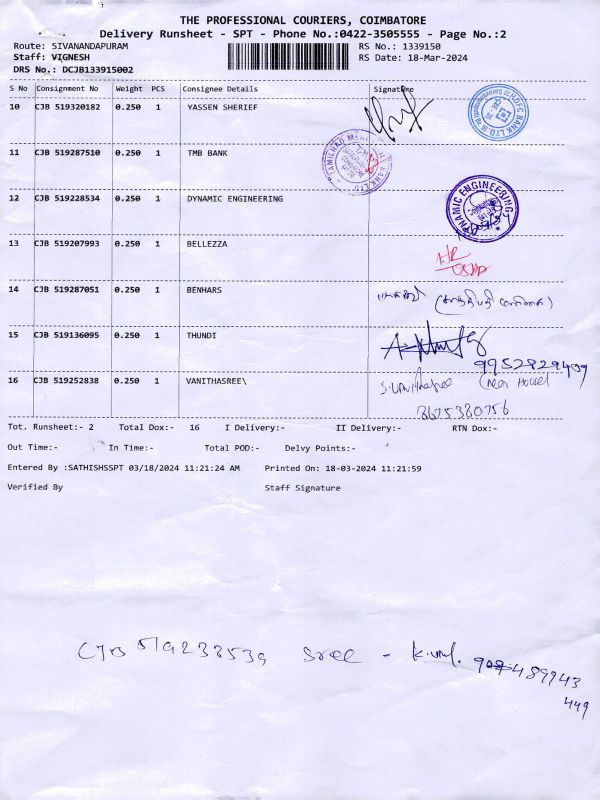 THE PROFESSIONAL COURIERS, COIMBATORE
Delivery Runsheet - SPT - Phone No.:0422-3505555 - Page No.:2
Route: SIVANANDAPURAM RS No.: 1339150
Staff: VIGNESH RS Date: 18-Mar-2024
DRS No.: DCJB133915002
S No Consignment No Weight PCS Consignee Details Signature
10 CJB 519320182 0.250 1 YASSEN SHERIEF
HDFC BANK LTD
11 CJB 519287510 0.250 1 TMB BANK
TAMILNAD BANK LTD
12 CJB 519228534 0.250 1 DYNAMIC ENGINEERING
DYNAMIC ENGINEERING
13 CJB 519207993 0.250 1 BELLEZZA
14 CJB 519287051 0.250 1 BENHARS
15 CJB 519136095 0.250 1 THUNDI
9952829409
16 CJB 519252838 0.250 1 VANITHASREE\
S.Vanithasree (near House)
8675380756
Tot. Runsheet:- 2 Total Dox:- 16 I Delivery:- II Delivery:- RTN Dox:-
Out Time:- In Time:- Total POD:- Delvy Points:-
Entered By :SATHISHSSPT 03/18/2024 11:21:24 AM Printed On: 18-03-2024 11:21:59
Verified By Staff Signature
CJB 519238539 Sree -
449